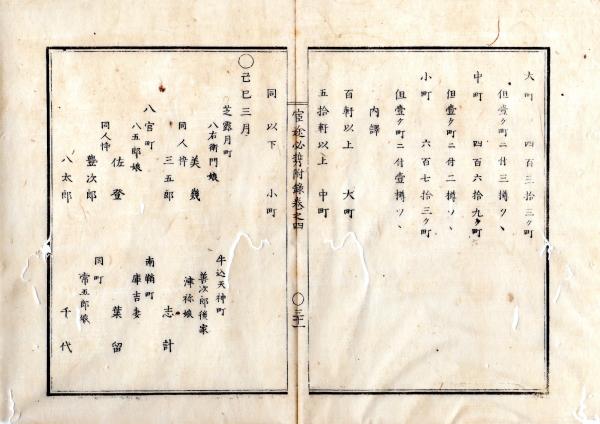 大町 四百三拾三ヶ町
但壹ヶ町ニ付三樽ツヽ
中町 四百六拾九ヶ町
但壹ヶ町ニ付二樽ツヽ
小町 六百七拾三ヶ町
但壹ヶ町ニ付壹樽ツヽ
內譯
百軒以上 大町
五拾軒以上 中町
同以下 小町
官途必携附錄卷之四
○三十一
○己巳三月
芝露月町
八右衛門娘
美幾
同人忰
三五郎
八官町
八五郎娘
佐登
同人忰
豊次郎
八太郎
牛込天神町
善次郎後家
津祢娘
志計
南鞘町
庫吉妻
葉留
同町
常五郎娘
千代